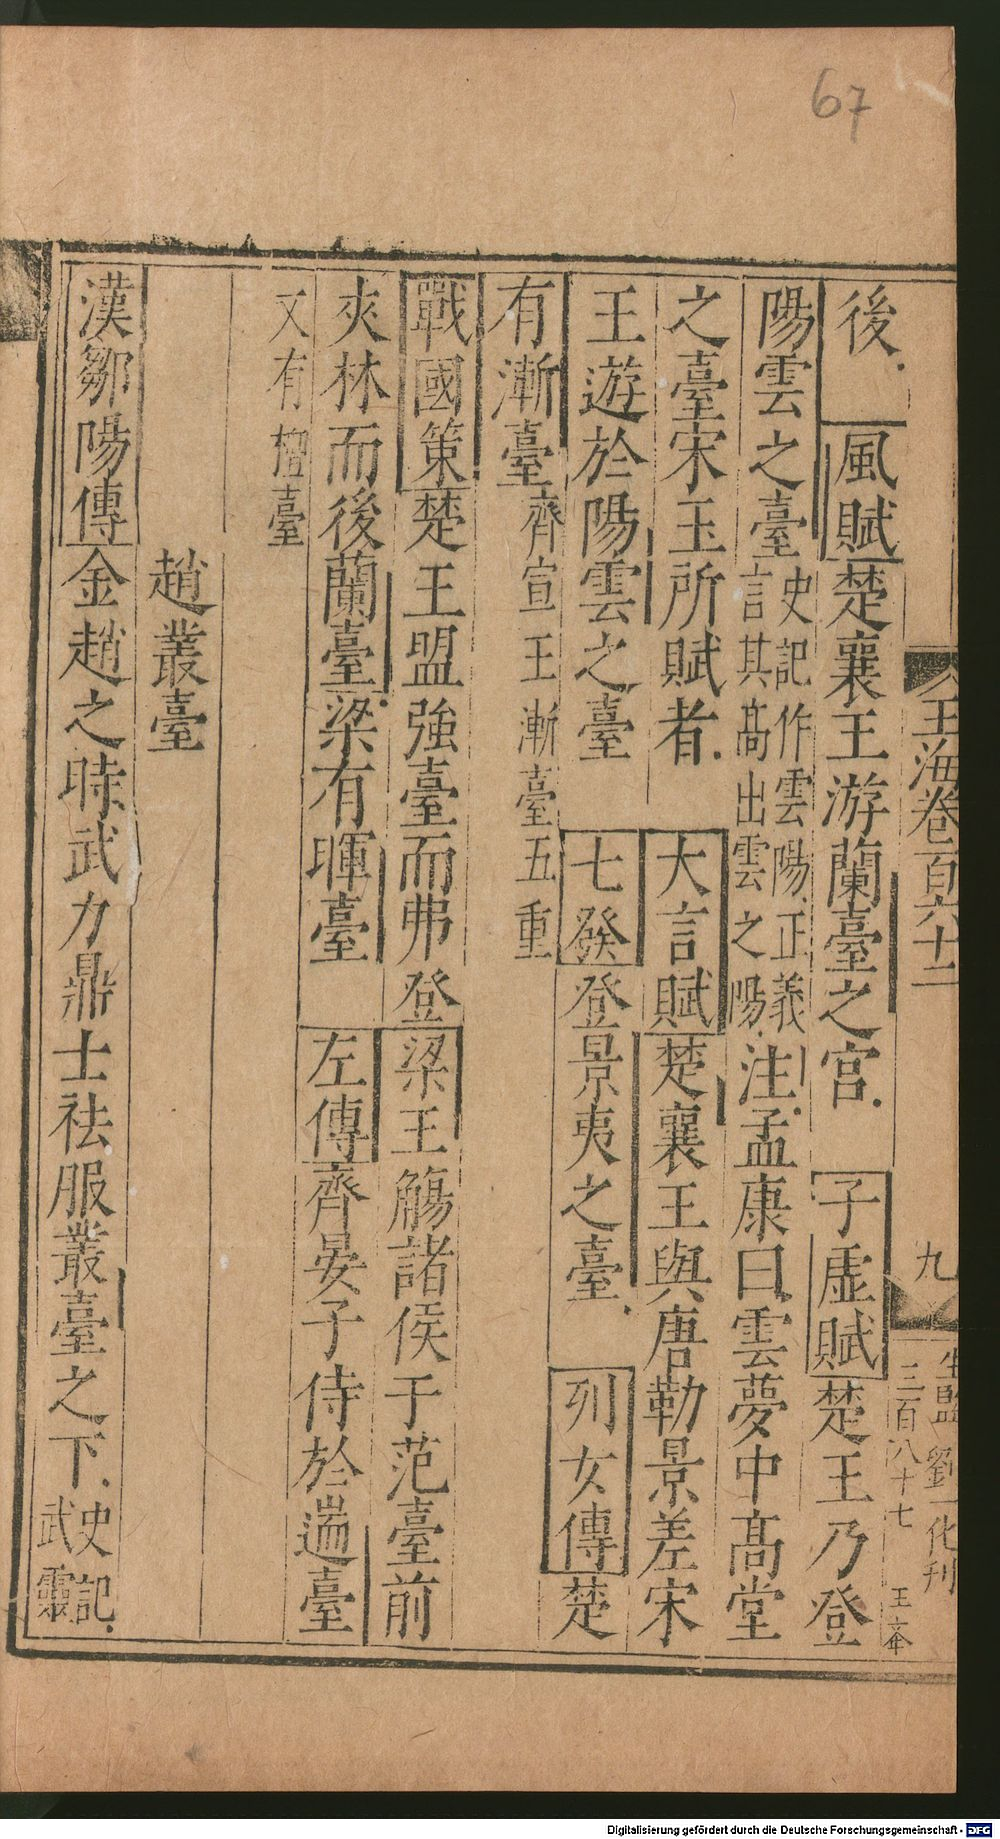 67
玉海卷百六十二
九
生監劉一化刊
三百八十七
王奔
後 風賦楚襄王游蘭臺之宮 子虛賦楚王乃登
陽雲之臺史記作雲陽正義言其高出雲之陽注孟康曰雲夢中高堂
之臺宋玉所賦者 大言賦楚襄王與唐勒景差宋
王遊於陽雲之臺 七發登景夷之臺 列女傳楚
有漸臺齊宣王漸臺五重
戰國策楚王盟強臺而弗登梁王觴諸侯于范臺前
夾林而後蘭臺梁有暉臺 左傳齊晏子侍於遄臺
又有檀臺
趙叢臺
漢鄒陽傳金趙之時武力鼎士袪服叢臺之下史記武靈
Digitalisierung gefördert durch die Deutsche Forschungsgemeinschaft - DFG